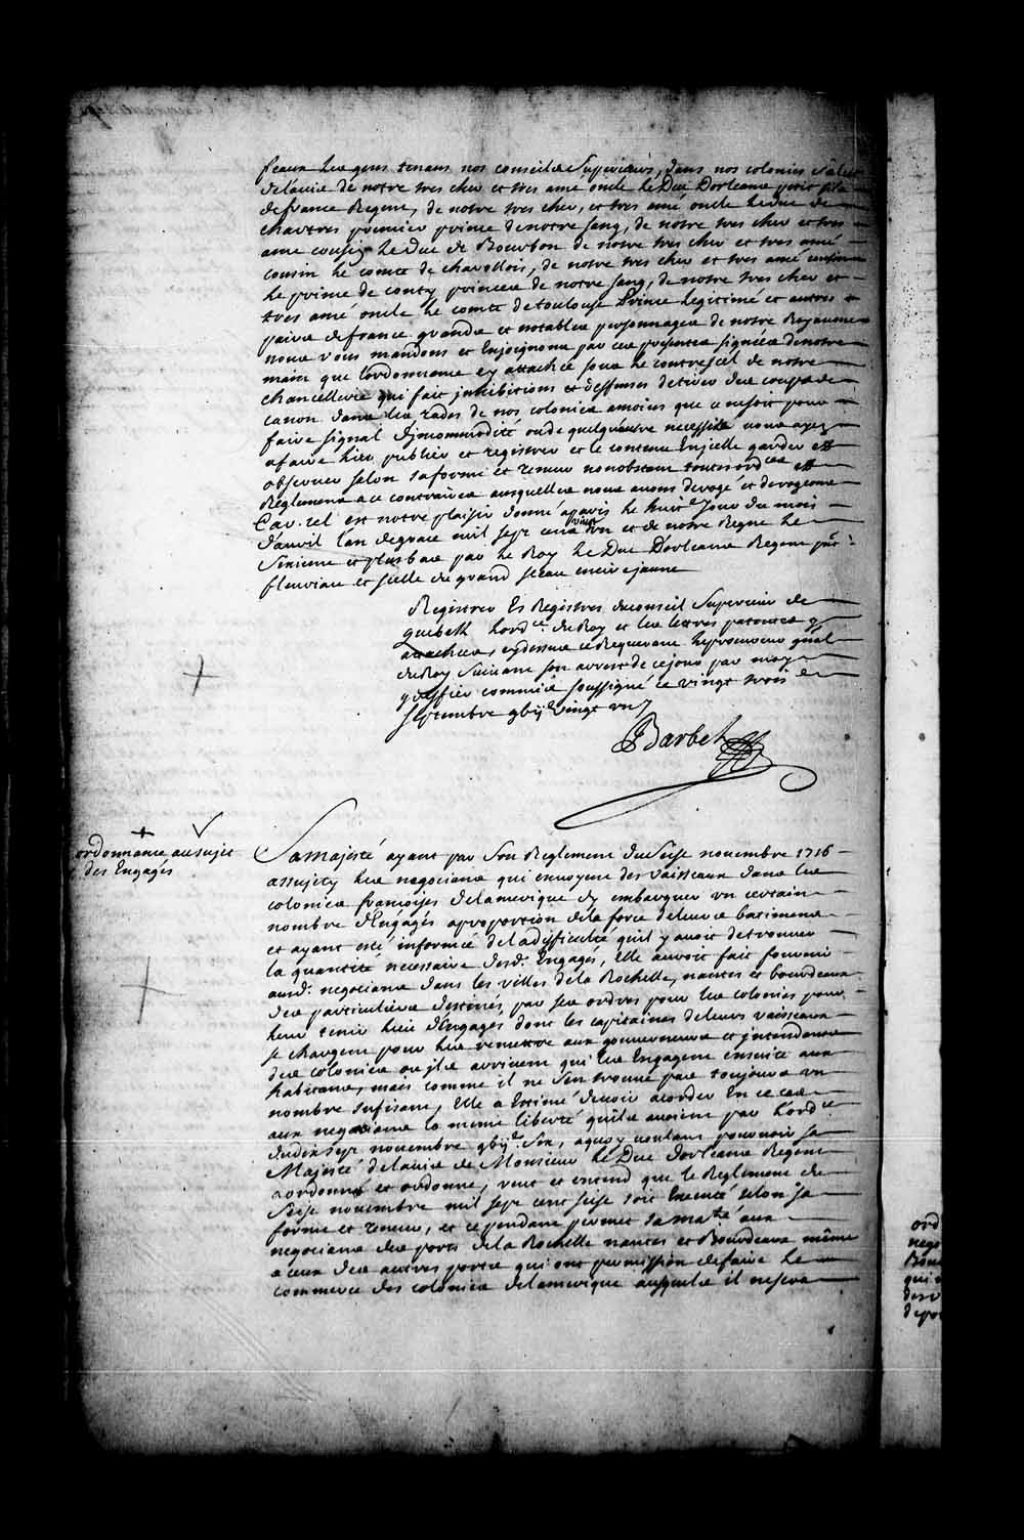 feaux Les gens tenans nos conseils Superieurs, dans nos colonies
delavis de notre tres cher et tres amé oncle Le Duc Dorleans petit fils
de france Regent, de notre tres cher, et tres amé oncle Le duc de
chartres premier prince de notre sang, de notre tres cher et tres
amé cousin Le Duc de Bourbon de notre tres cher et tres amé
cousin Le comte de charollois, de notre tres cher et tres amé cousin
Le prince de conty princes de notre sang, de notre tres cher et
tres amé oncle Le comte detoulouse Prince Legitimé et autres
pairs defrance grands et notables personnages de notre Royaume
nous vous mandons et Enjoignons par ces presentes signées denotre
main que Lordonnance cy attachée sous Le contrescel de notre
chancellerie qui fait jnhibitions et deffenses detirer des coups de
canon dans les rades de nos colonies amoins que ce nesoit pour
faire signal djncommodité ou de quelqu'autre necessité vous ayez
afaire Lire, publier et registrer et le contenu Enjcelle garder et
observer selon saforme et teneur nonobstant tous ord.ces et
Reglemens a ce contraires ausquelles nous avons derogé et derogeons
Car tel est notre plaisir donné aparis le huit.e jour du mois
d'avril l'an degrace mil sept cens vingt un et de notre Regne Le
Sixieme et plus bas par Le Roy Le Duc Dorleans Regent p.nt
fleuriau et scellé du grand sceau encire jaune
Registrer Es Registres duconseil Superieur de
quebek Lord.ce du Roy et les lettres patentes y
attachées cydessus ce Requerant Le procureur g.nal
du Roy Suivant son arrest de cejour par moy
greffier commis soussigné ce vingt trois
septembre gbij.c vingt un
Barbel
ordonnance au sujet
des Engagés
Sa majesté ayant par Son Reglement du Seise novembre 1716
assujety les negocians qui envoyent des vaisseaux dans les
colonies françoises delamerique dy embarquer un certain
nombre d'Engagés aproportion dela force deleurs batimens
et ayant eté informée de ladifficulté quil y avoit detrouver
la quantité necessaire desd. Engagés, Elle auroit fait fournir
ausd. negocians dans les villes dela Rochelle, nantes et bourdeaux
des particuliers destinés, par ses ordres pour les colonies pour
leur tenir lieu d'Engagés dont les capitaines deleurs vaisseaux
se chargent pour les remettre aux gouverneurs et jntendans
des colonies ou jls arrivent qui les Engagent ensuite aux
habitans, mais comme il ne s'en trouve pas toujours un
nombre sufisant, Elle a Estimé devoir acorder En ce cas
aux negocians la meme liberté quils avoient par Lord.ce
dudix sept novembre gbij.c six, aquoy voulant pourvoir sa
Majesté delavis de Monsieur le Duc dorleans Regent
a ordonné et ordonne, veut et entend que le Reglement du
Seise novembre mil sept cent seise soit Executé selon sa
forme et teneur, et ce pendant permet sa ma.té aux
negocians des ports dela Rochelle nantes et Bourdeaux même
a ceux des autres ports qui ont permission defaire Le
commerce des colonies delamerique ausquels il nesera
ord
nego
Bou
qui